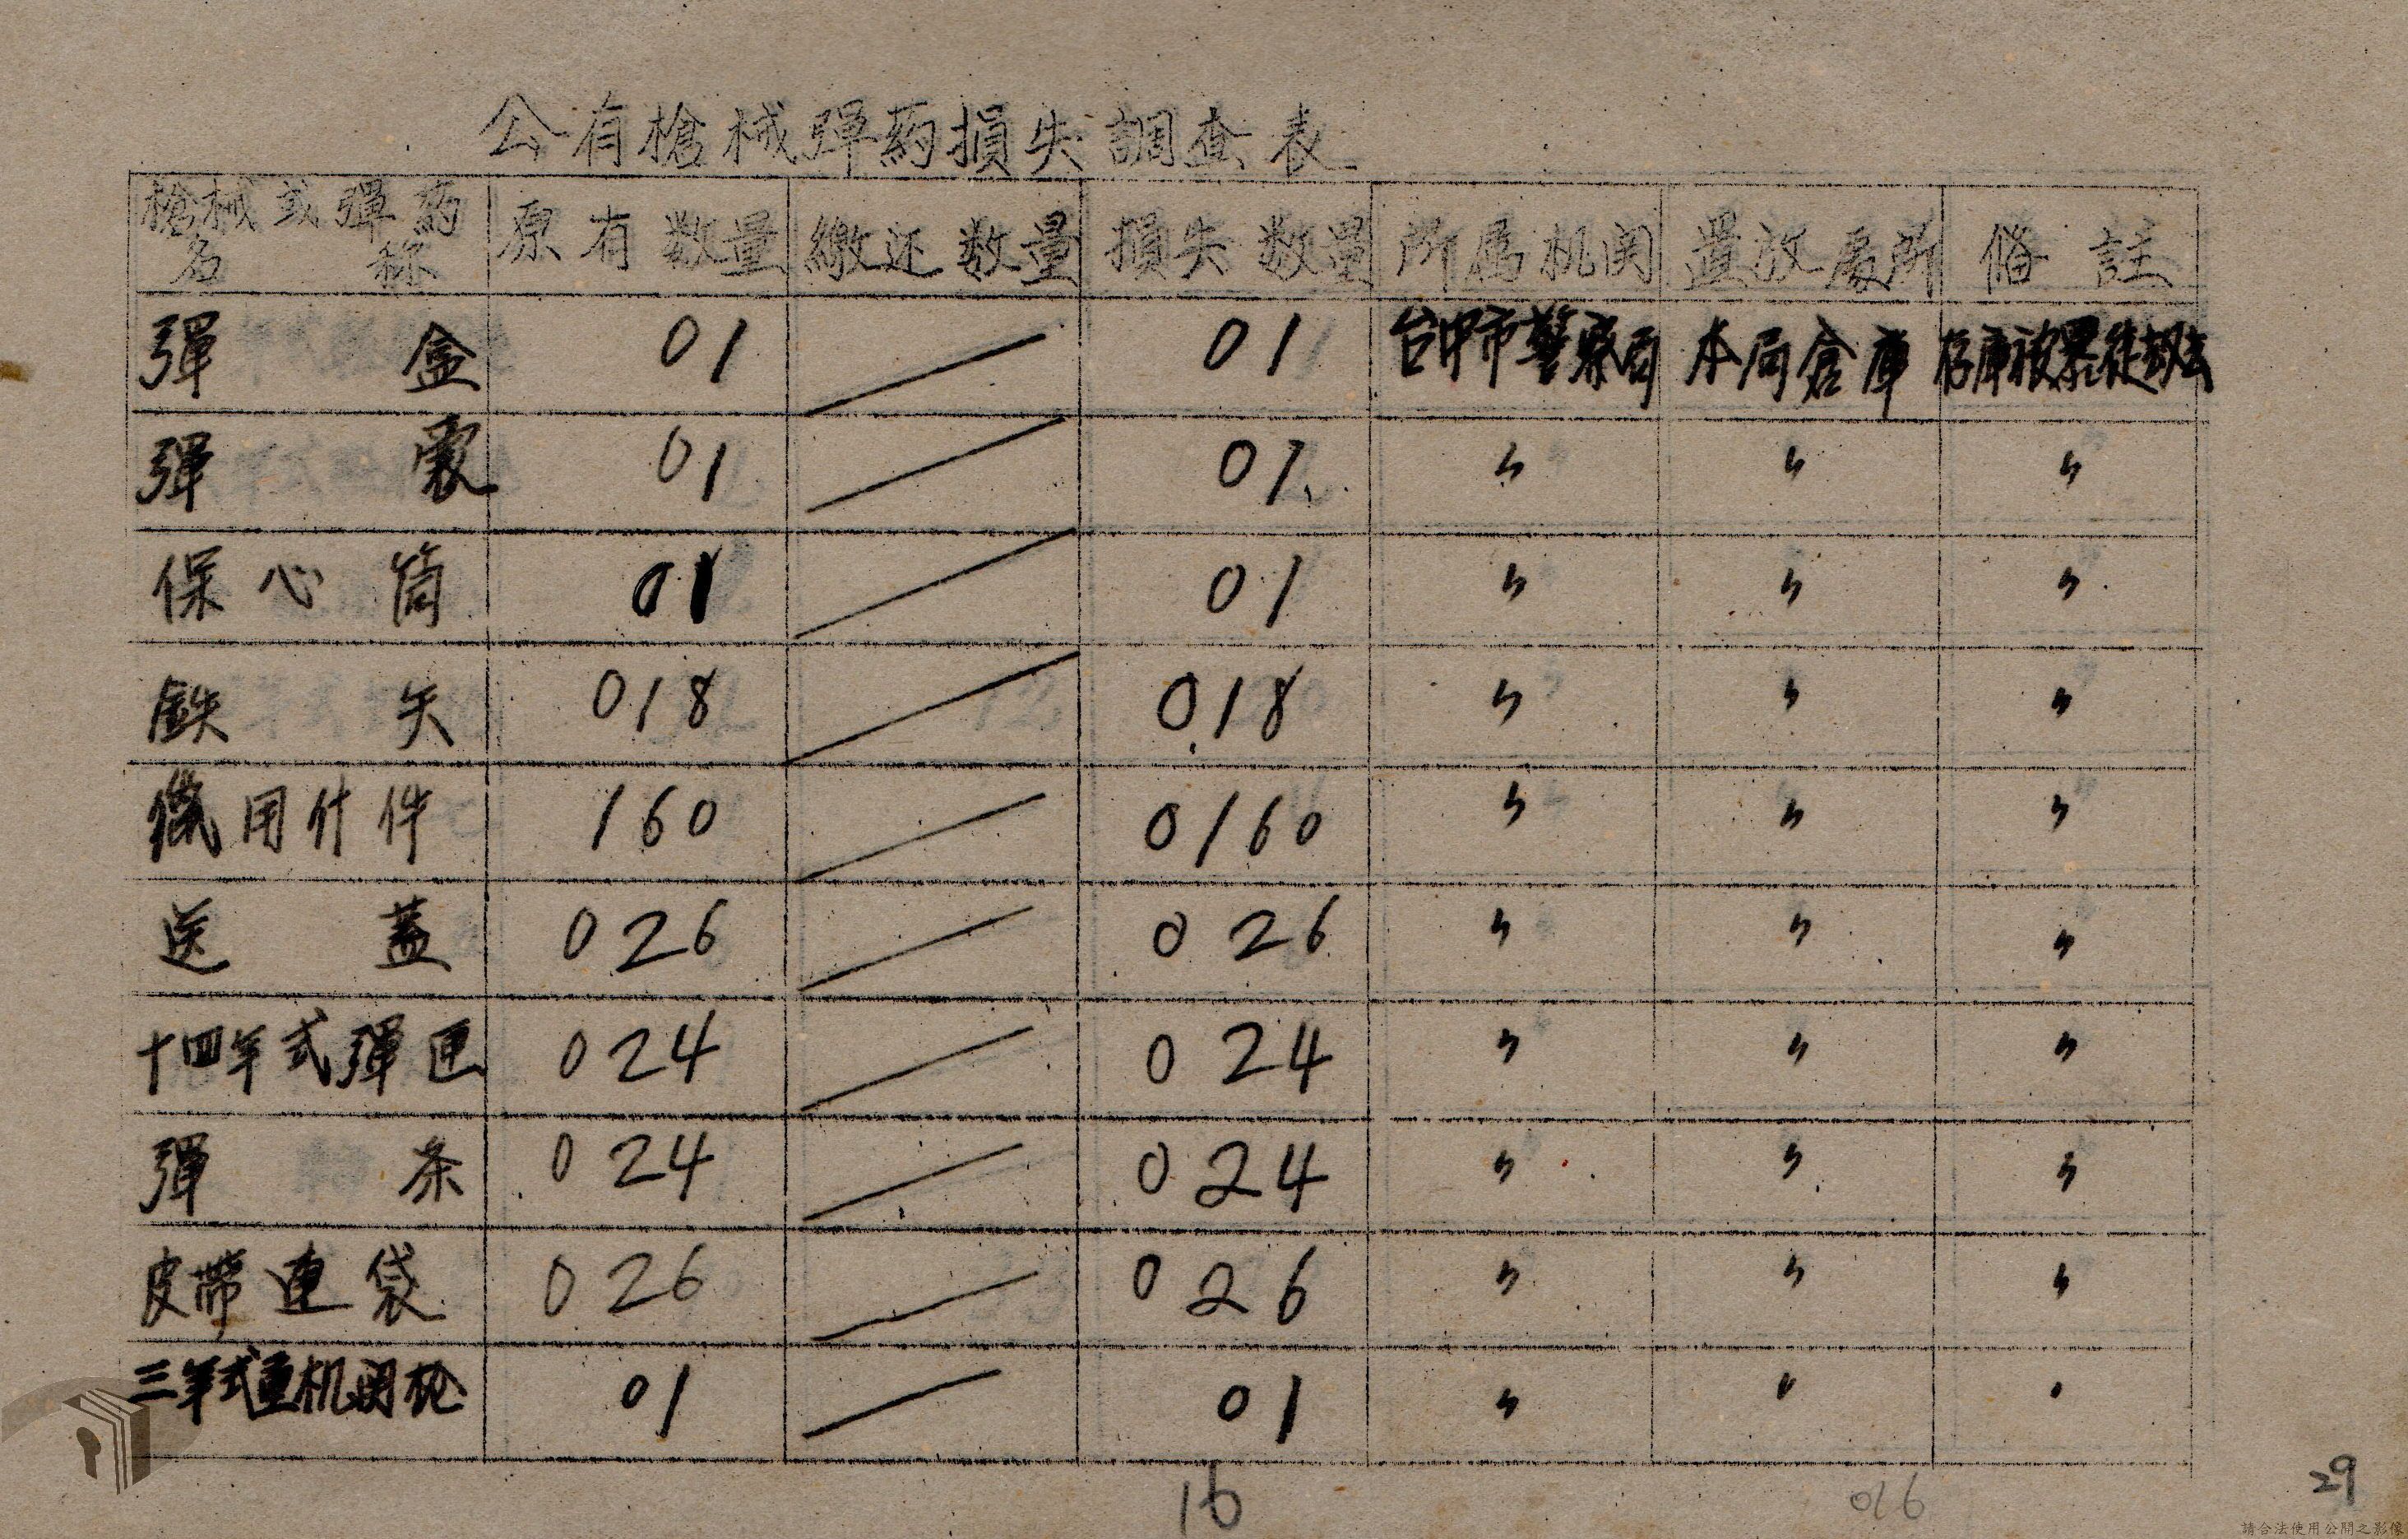 公有槍械弹葯損失調查表
槍械或彈葯名称 原有数量 繳还数量 損失数量 所属机関 置放處所 俻註
彈盒 01 / 01 台中市警察局 本局倉庫 存庫被暴徒刼去
彈 01 / 01 〃 〃 〃
保心筒 01 / 01 〃 〃 〃
鉄矢 018 / 018 〃 〃 〃
用什件 160 / 0160 〃 〃 〃
送蓋 026 / 026 〃 〃 〃
十四年式彈匣 024 / 024 〃 〃 〃
彈条 024 / 024 〃 〃 〃
皮帶連袋 026 / 026 〃 〃 〃
三年式重机関枪 01 / 01 〃 〃 〃
16
016
29
請合法使用公開之影像